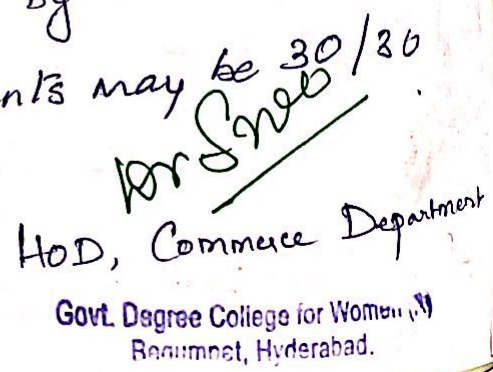 by
nts may be 30/30
HOD, Commerce Department
Govt. Degree College for Women
Begumpet, Hyderabad.